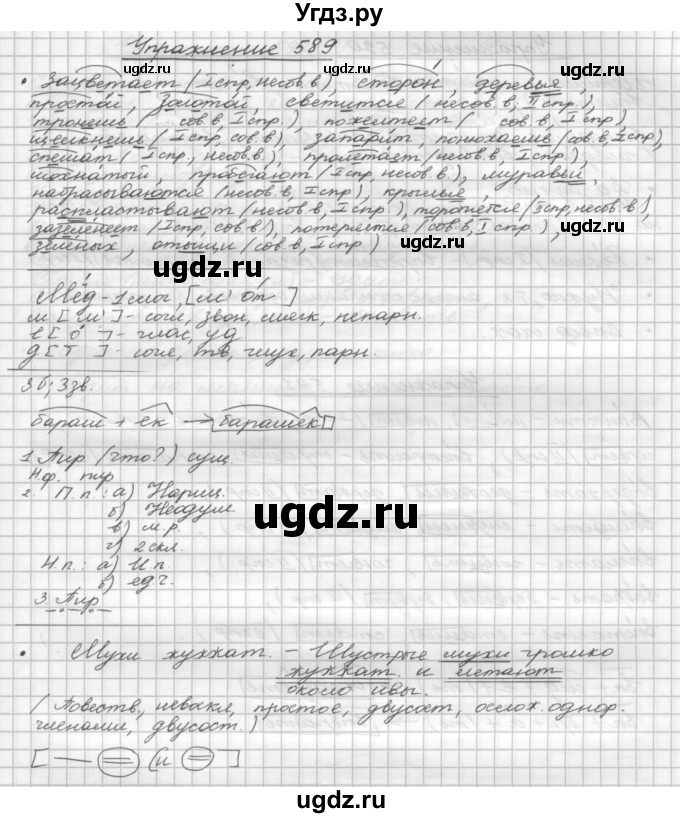 Угдз.ру
Упражнение 589
• Зацветает (I спр, несов.в), сторон, деревья,
простой, золотой, светится (несов.в, II спр.),
тронешь ( сов.в, I спр.), пожелтеет ( сов.в, I спр.)
щелкнешь (I спр, сов.в), запарят, понюхаешь (сов.в, I спр),
спешат ( I спр, несов.в.), пролетает (несов.в, I спр.),
мохнатый, пробегают (I спр, несов.в.), муравьи,
набрасываются (несов.в, I спр), крылья,
распластывают (несов.в, I спр), торопется (II спр, несов.в),
зазеленеет (I спр, сов.в), потеряется (сов.в, I спр.),
зелёных, отыщи (сов.в, I спр.)
Мёд - 1 слог, [м' от ]
м [ м' ] - согл, звон, мягк, непарн.
ё [ о ] - глас, уд
д [ т ] - согл, тв, глух, парн.
3б; 3зв.
бараш + ек → барашек
1. Пир (что?) сущ.
Н.ф. пир
2. П.п.: а) Нариц.
б) Неодуш.
в) м.р.
г) 2 скл.
Н.п.: а) И.п
б) ед.ч.
3. Пир
• Мухи жужжат. - Шустрые мухи громко
жужжат и летают
около ивы.
(Повеств, невоскл, простое, двусост, ослож. однор.
членами, двусост.)
[ — = (и = ]
ugdz.ru
ugdz.ru
ugdz.ru
ugdz.ru
ugdz.ru
ugdz.ru
ugdz.ru
ugdz.ru
ugdz.ru
ugdz.ru
ugdz.ru